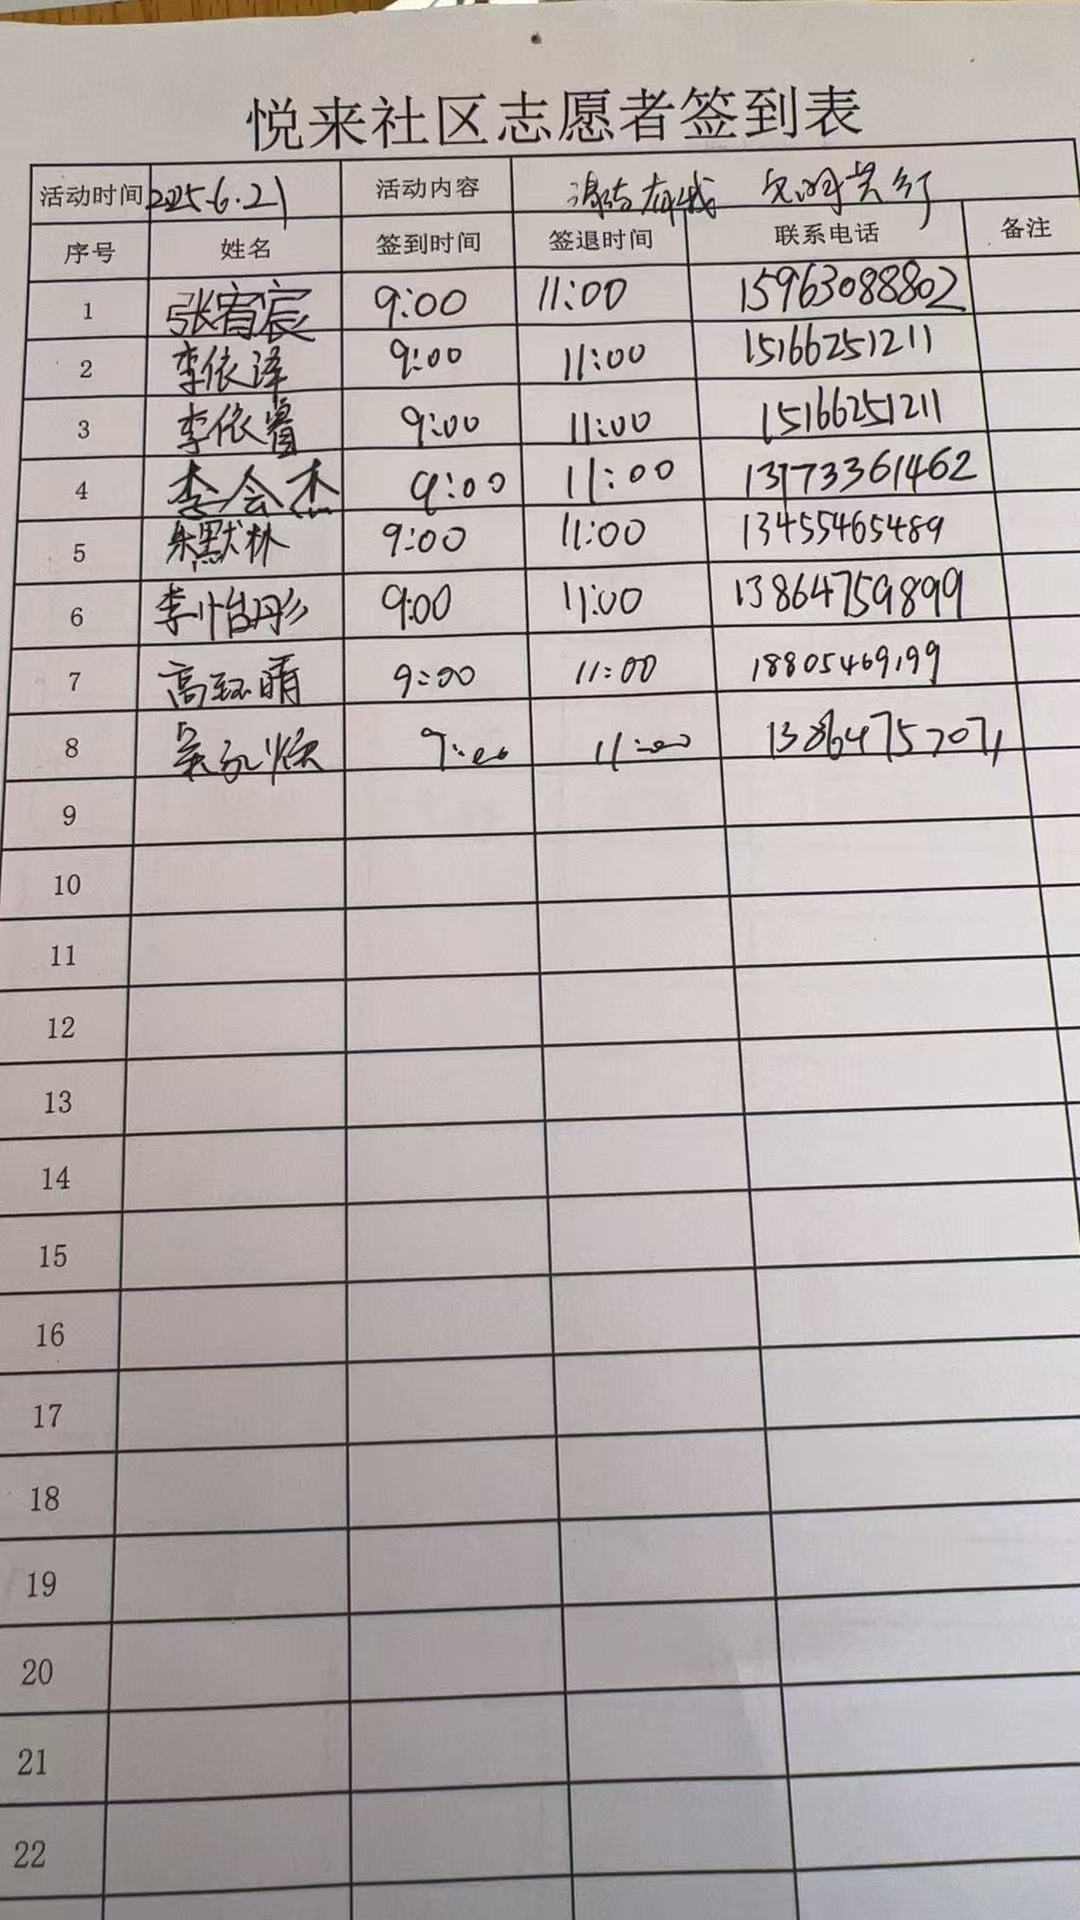 悦来社区志愿者签到表
活动时间 2025.6.21 活动内容 有我 文明共行
序号 姓名 签到时间 签退时间 联系电话 备注
1 张宥宸 9:00 11:00 15963088802
2 李依泽 9:00 11:00 15166251211
3 李依睿 9:00 11:00 15166251211
4 李会杰 9:00 11:00 13173361462
5 朱默林 9:00 11:00 13455465489
6 李怡彤 9:00 11:00 13864759899
7 高钰晴 9:00 11:00 18805469199
8 9:00 11:00
9
10
11
12
13
14
15
16
17
18
19
20
21
22